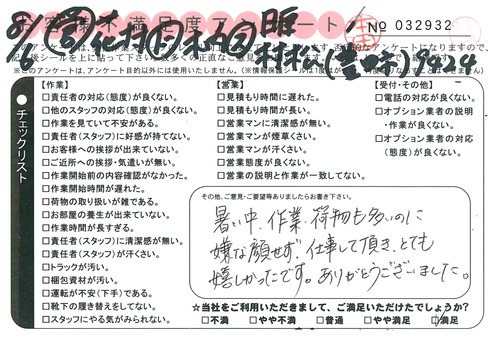 お客様不満足度アンケート
No 032932
チェックリスト
【作業】
□責任者の対応(態度)が良くない。
□他のスタッフの対応(態度)が良くない。
□作業を見ていて不安がある。
□責任者(スタッフ)に好感が持てない。
□お客様への挨拶が出来ていない。
□ご近所への挨拶・気遣いが無い。
□作業開始前の内容確認がなかった。
□作業開始時間が遅れた。
□荷物の取り扱いが雑である。
□お部屋の養生が出来ていない。
□作業時間が長すぎる。
□責任者(スタッフ)に清潔感が無い。
□責任者(スタッフ)が汗くさい。
□トラックが汚い。
□梱包資材が汚い。
□運転が不安(下手)である。
□靴下の履き替えをしてない。
□スタッフにやる気がみられない。
【営業】
□見積もり時間に遅れた。
□見積もり時間が長い。
□営業マンに清潔感が無い。
□営業マンが煙草くさい。
□営業マンが汗くさい。
□営業態度が良くない。
□営業の説明と作業が一致してない。
【受付・その他】
□電話の対応が良くない。
□オプション業者の説明
・作業が良くない。
□オプション業者の対応
(態度)が良くない。
その他、ご意見・ご要望等ありましたらお書き下さい。
暑い中、作業、荷物も多いのに
嫌な顔せず、仕事して頂き、とても
嬉しかったです。ありがとうございました。
☆当社をご利用いただきまして、ご満足いただけてしょうか?
□不満 □やや不満 □普通 □やや満足 □満足